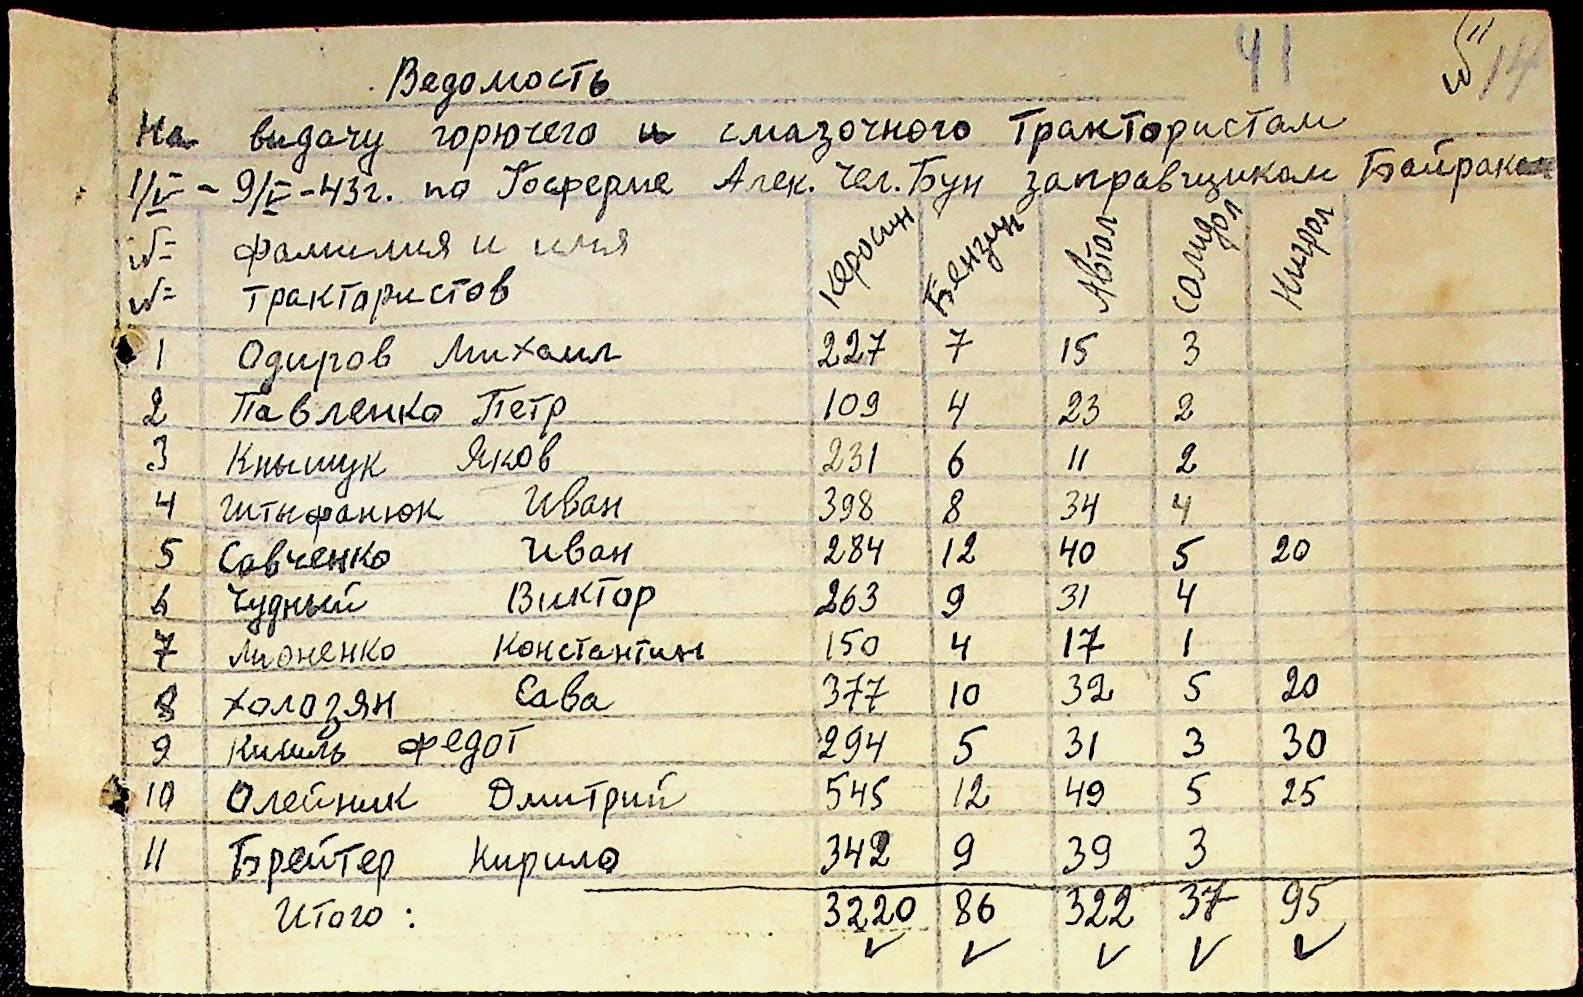 41
14
Ведомость
На видачу горючего и смазочного трактористам
1/V - 9/V-43г. по Госферме Алек. Чел. Бун заправщиком Байраком
№ фамилия и имя Керосин Бензин Автол Солидол Нигрол
№ трактористов
1 Одиров Михаил 227 7 15 3
2 Павленко Петр 109 4 23 2
3 Кнышук Яков 231 6 11 2
4 Штыфанюк Иван 398 8 34 4
5 Савченко Иван 284 12 40 5 20
6 Чудный Виктор 263 9 31 4
7 Лионенко Константин 150 4 17 1
8 Холозян Сава 377 10 32 5 20
9 Кисиль Федот 294 5 31 3 30
10 Олейник Дмитрий 545 12 49 5 25
11 Брейтер Кирило 342 9 39 3
Итого: 3220 86 322 37 95